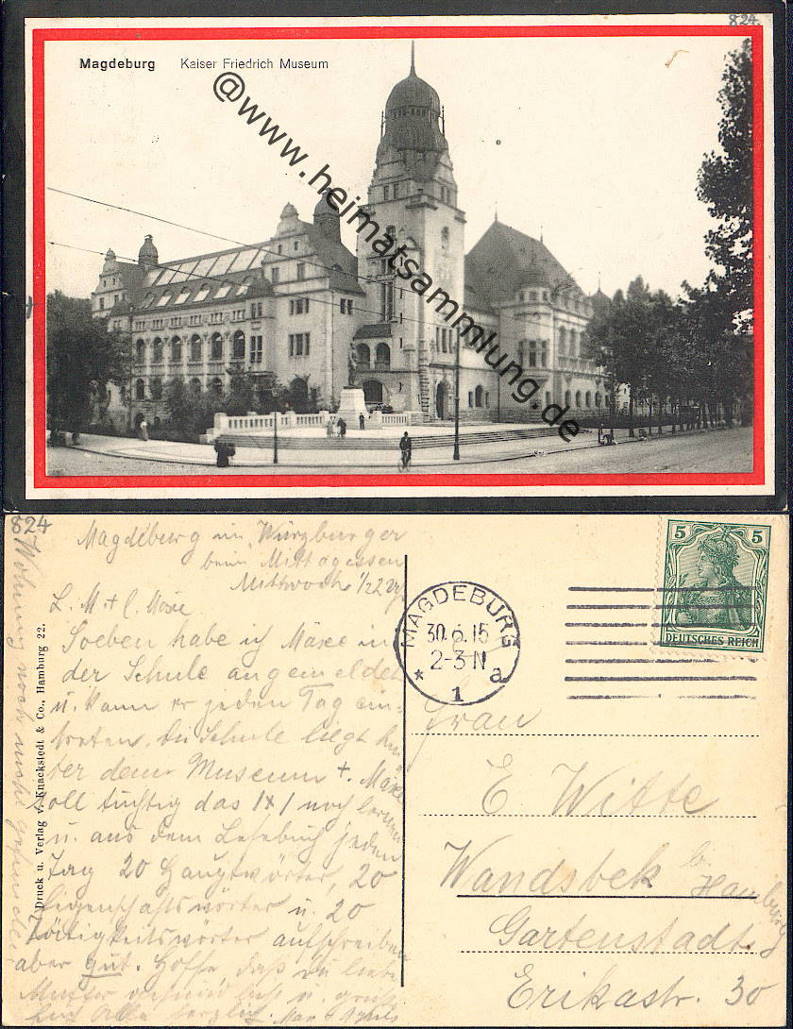 824.
Magdeburg Kaiser Friedrich Museum
@www.heimatsammlung.de
824
Magdeburg im Würzburger
beim Mittagessen
Mittwoch 1/2 2
L. M + l. Mäxe
Soeben habe ich Mäxe in
der Schule angemeldet
u. kann er jeden Tag ein-
treten. die Schule liegt hin
ter dem Museum +. Mäxe
soll tüchtig das 1x1 noch lernen
u. aus dem Lesebuch jeden
Tag 20 Hauptwörter, 20
Eigenschaftswörter u. 20
Tätigkeitswörter aufschreiben
aber gut. Hoffe daß Du liebe
Mutter gesund bist u. grüße
Euch Alle herzlich.
Wohnung noch nicht gefunden.
Druck u. Verlag v. Knackstedt & Co., Hamburg 22.
MAGDEBURG
30.6.15
2-3 N
* 1 a
5 5
DEUTSCHES REICH
Frau
E Witte
Wandsbek b.
Hamburg
Gartenstadt.
Erikastr. 30